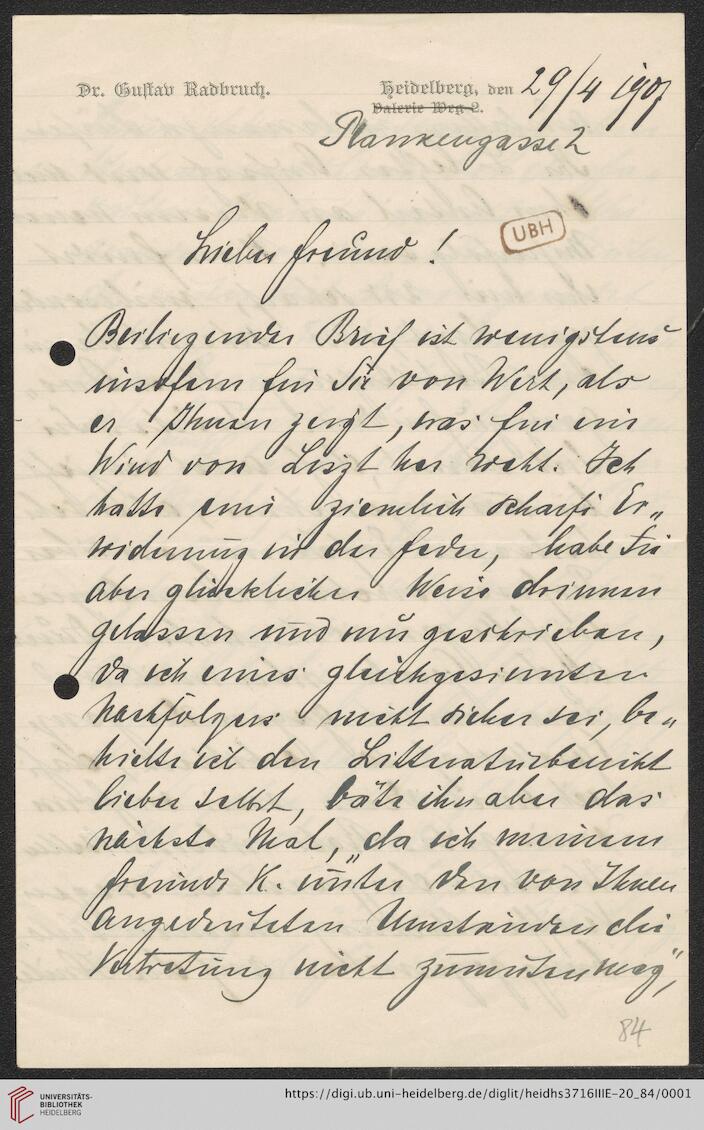 Dr. Gustav Radbruch.
Heidelberg, den 29/4 1907
Valerie Weg 2.
Plankengasse 2
Lieber Freund!
UBH
Beiliegender Brief ist wenigstens
insofern für Sie von Wert, als
er Ihnen zeigt, was für ein
Wind von Liszt her weht. Ich
hatte eine ziemlich scharfe Er„
widerung in der Feder, habe sie
aber glücklicher Weise drinnen
gelassen und nur geschrieben,
da ich eines gleichgesinnten
Nachfolgers nicht sicher sei, be„
hielte ich den Litteraturbericht
lieber selbst, bäte ihn aber das
nächste Mal, „da ich meinem
Freunde K. unter den von Ihnen
angedeuteten Umständen die
Vertretung nicht zumuten mag",
84
UNIVERSITÄTS-
BIBLIOTHEK
HEIDELBERG
https://digi.ub.uni-heidelberg.de/diglit/heidhs3716IIIE-20_84/0001